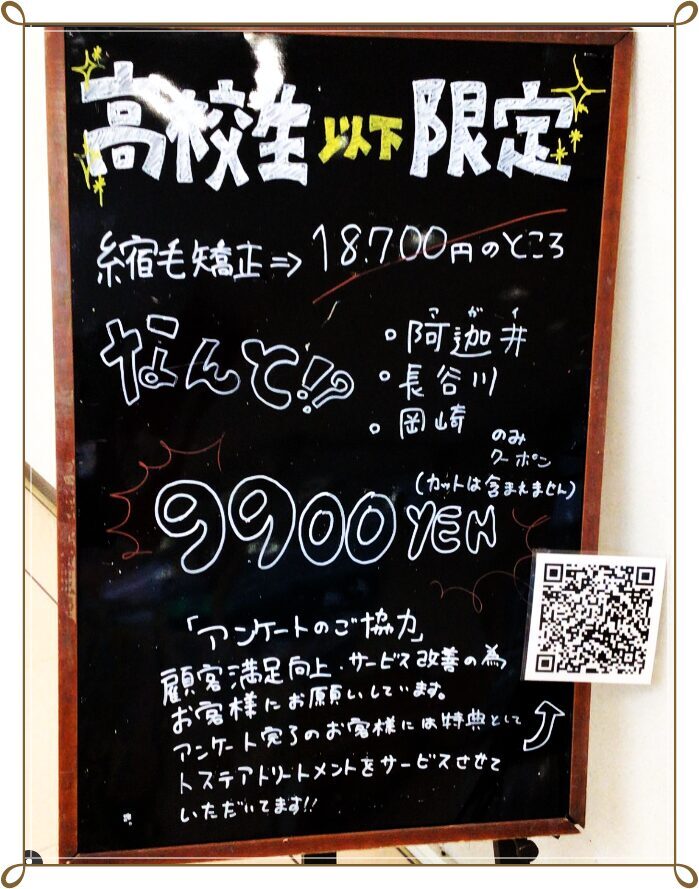 高校生以下限定
縮宿毛矯正⇒18.700円のところ
なんと!?
こがイ
・阿迦井
・長谷川
・岡崎
のみ
クーポン
(カットは含まれません)
9900YEN
「アンケートのご協力」
顧客満足向上・サービス改善の為
お客様にお願いしています。
アンケート完了のお客様には特典として
トステアトリートメントをサービスさせて
いただいてます!!